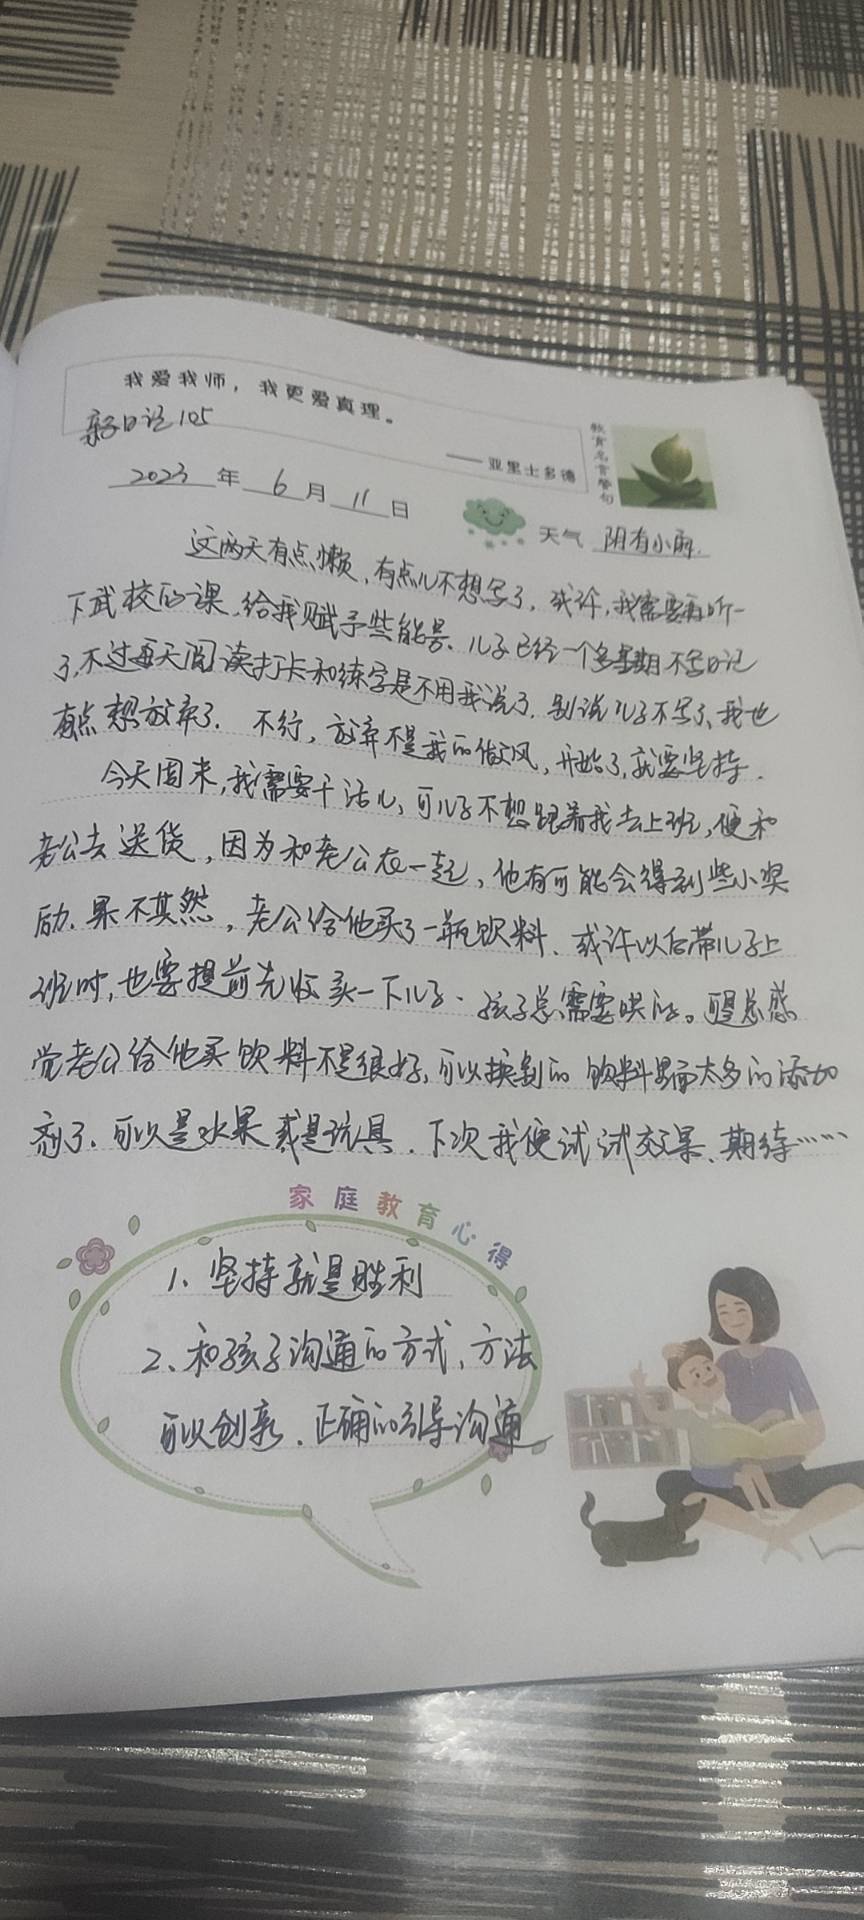 我爱我师，我更爱真理。
——亚里士多德
教育名言警句
亲子日记105
2023年6月11日
天气 阴有小雨.
这两天有点懒，有点儿不想写了，或许，我需要再听一
下武校的课，给我赋予些能量、儿子已经一个多星期不写日记
了,不过每天阅读打卡和练字是不用我说了.别说儿子不写了、我也
有点想放弃了. 不行，放弃不是我的做风，开始了,就要坚持.
今天周末,我需要干活儿、可儿子不想跟着我去上班,便和
老公去送货，因为和老公在一起，他有可能会得到些小奖
励.果不其然，老公给他买了一瓶饮料、或许以后带儿子上
班时,也要提前先收买一下儿子.孩子总需要哄的。可是总感
觉老公给他买饮料不是很好,可以换别的 饮料里面太多的添加
剂了、可以是水果或是玩具.下次我便试试效果、期待……
家庭教育心得
1、坚持就是胜利
2、和孩子沟通的方式、方法
可以创新、正确的引导沟通